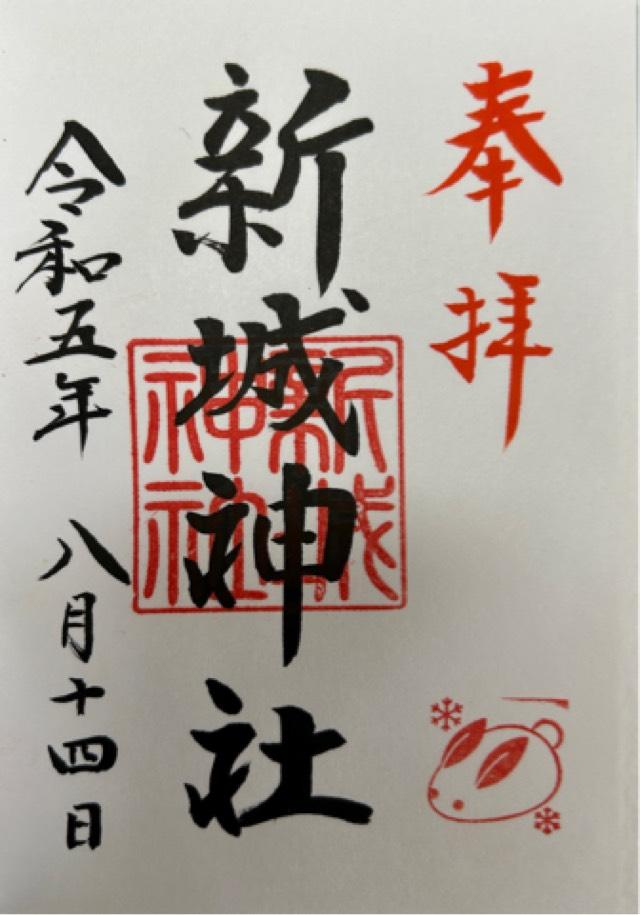 奉拝
新城神社
新城神社
令和五年 八月十四日